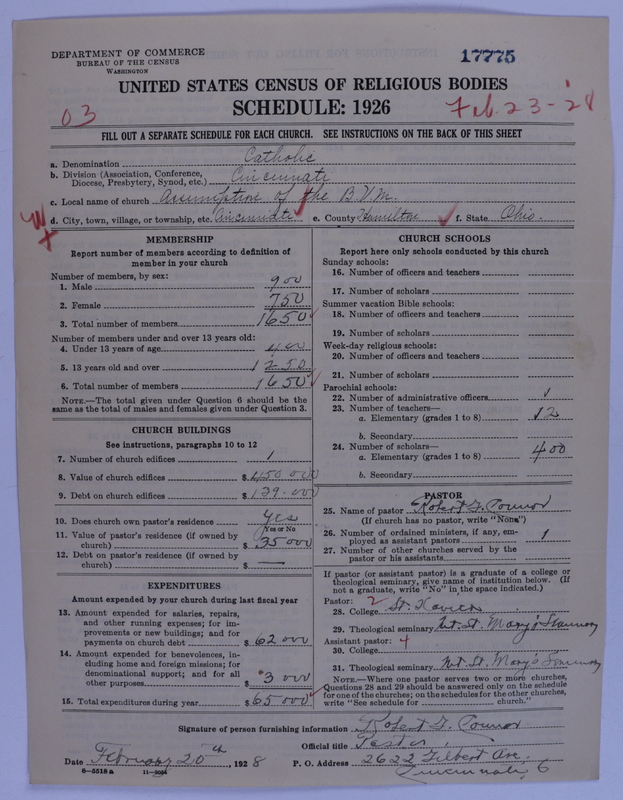 DEPARTMENT OF COMMERCE
BUREAU OF THE CENSUS
WASHINGTON
17775
UNITED STATES CENSUS OF RELIGIOUS BODIES
SCHEDULE: 1926
03
Feb. 23-'28
FILL OUT A SEPARATE SCHEDULE FOR EACH CHURCH. SEE INSTRUCTIONS ON THE BACK OF THIS SHEET
a. Denomination Catholic
b. Division (Association, Conference, Diocese, Presbytery, Synod, etc.) Cincinnati
c. Local name of church Assumption of the B.V.M.
d. City, town, village, or township, etc. Cincinnati e. County Hamilton f. State Ohio.
MEMBERSHIP
Report number of members according to definition of member in your church
Number of members, by sex:
1. Male 900
2. Female 750
3. Total number of members 1650
Number of members under and over 13 years old:
4. Under 13 years of age 400
5. 13 years old and over 1250
6. Total number of members 1650
NOTE.—The total given under Question 6 should be the same as the total of males and females given under Question 3.
CHURCH BUILDINGS
See instructions, paragraphs 10 to 12
7. Number of church edifices 1
8. Value of church edifices $450 000
9. Debt on church edifices $139-000
10. Does church own pastor's residence Yes
Yes or No
11. Value of pastor's residence (if owned by church) $35000
12. Debt on pastor's residence (if owned by church) $ —
EXPENDITURES
Amount expended by your church during last fiscal year
13. Amount expended for salaries, repairs, and other running expenses; for improvements or new buildings; and for payments on church debt $62 000
14. Amount expended for benevolences, including home and foreign missions; for denominational support; and for all other purposes $3 000
15. Total expenditures during year $65 000
CHURCH SCHOOLS
Report here only schools conducted by this church
Sunday schools:
16. Number of officers and teachers
17. Number of scholars
Summer vacation Bible schools:
18. Number of officers and teachers
19. Number of scholars
Week-day religious schools:
20. Number of officers and teachers
21. Number of scholars
Parochial schools:
22. Number of administrative officers 1
23. Number of teachers—
a. Elementary (grades 1 to 8) 12
b. Secondary
24. Number of scholars—
a. Elementary (grades 1 to 8) 400
b. Secondary
PASTOR
25. Name of pastor Robert J. Connor
(If church has no pastor, write "None")
26. Number of ordained ministers, if any, employed as assistant pastors 1
27. Number of other churches served by the pastor or his assistants
If pastor (or assistant pastor) is a graduate of a college or theological seminary, give name of institution below. (If not a graduate, write "No" in the space indicated.)
Pastor: 2
28. College St. Xavier
29. Theological seminary Mt. St. Mary's Seminary
Assistant pastor: 4
30. College
31. Theological seminary Mt. St. Mary's Seminary
NOTE.—Where one pastor serves two or more churches, Questions 28 and 29 should be answered only on the schedule for one of the churches; on the schedules for the other churches, write "See schedule for ______ church."
Signature of person furnishing information Robert J. Connor
Official title Pastor
Date February 20th, 1928 P. O. Address 2622 Gilbert Ave.
Cincinnati, O
6—5518a 11—9064